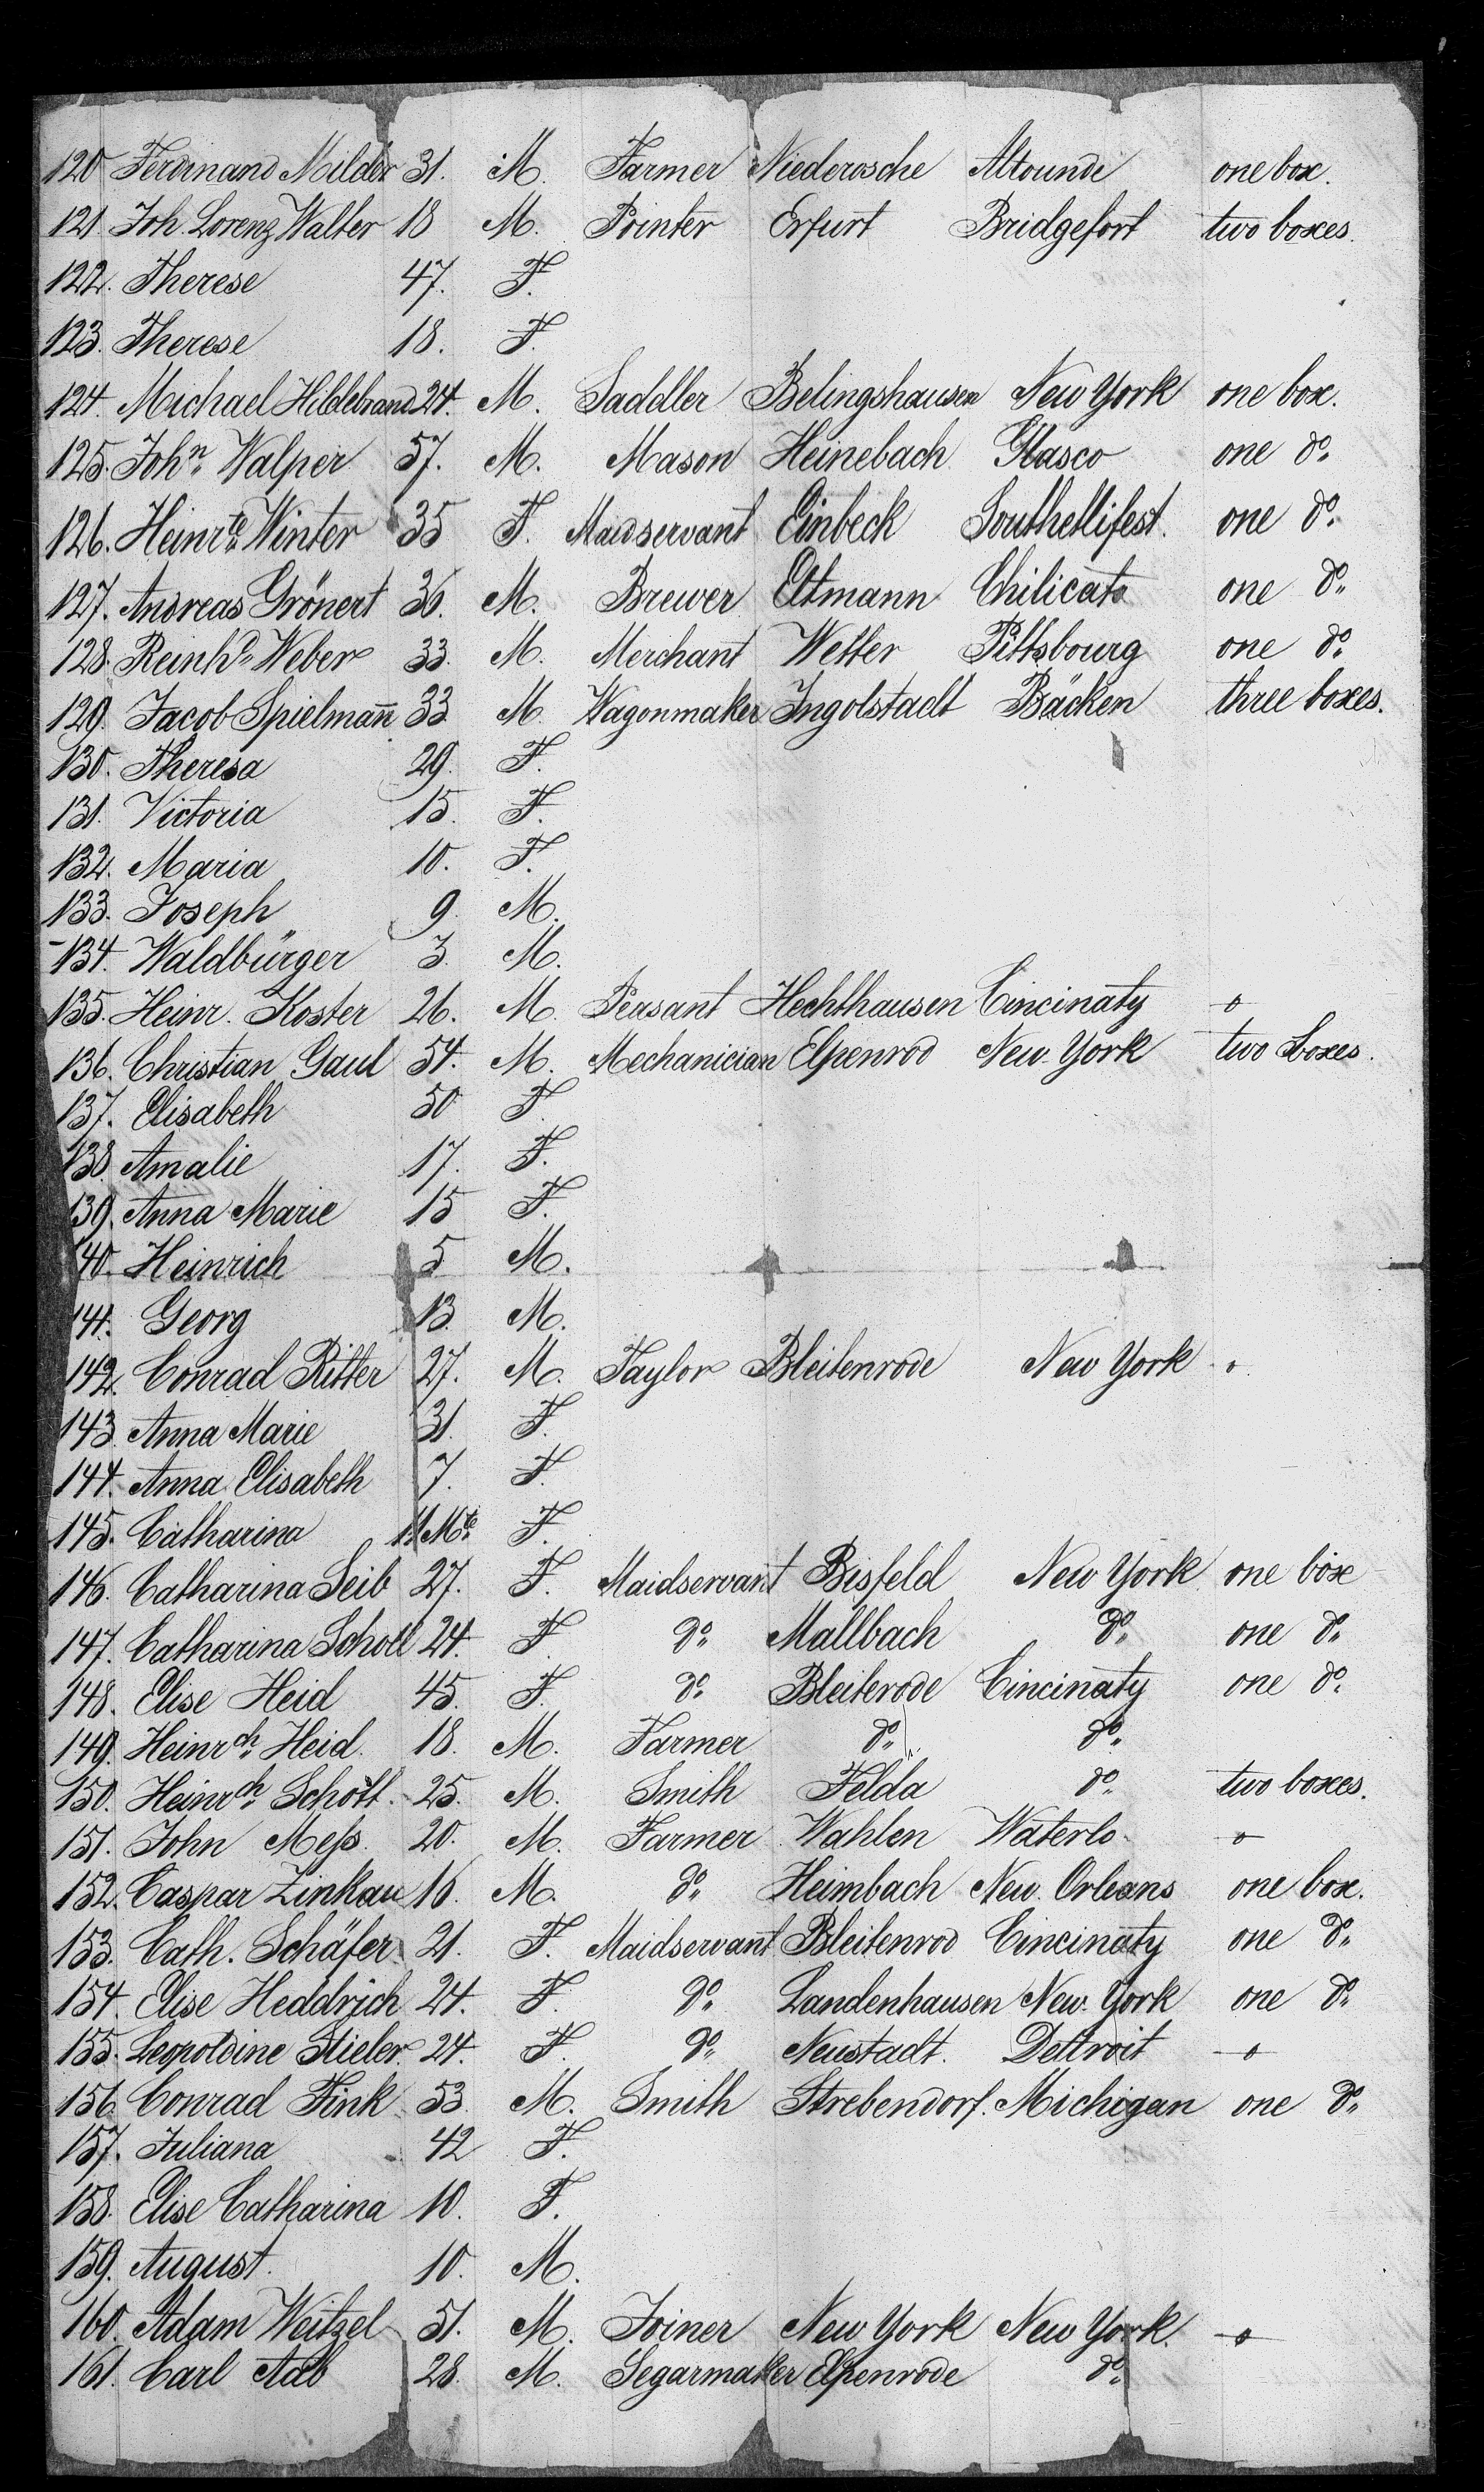 120 Ferdinand Milder 31. M. Farmer Niederosche Altounde one box.
121. Joh. Lorenz Walter 18 M. Printer Erfurt Bridgefort two boxes.
122. Therese 47. F.
123. Therese 18. F.
124. Michael Hildebrand 24. M. Saddler Belingshausen New York one box.
125. John. Walper 57. M. Mason Heinebach Glasco one do.
126. Heinrte. Winter 35 F. Maidservant Einbeck one do.
127. Andreas Grönert 36. M. Brewer Eltmann Chilicato one do.
128. Reinhd. Weber 33. M. Merchant Wetter Pittsbourg one do.
129. Jacob Spielmañ 33 M. Wagonmaker Ingolstadt Bäcken three boxes.
130. Theresa 29. F.
131. Victoria 15. F.
132. Maria 10. F.
133. Joseph 9. M.
134. Waldbürger 3. M.
135. Heinr. Koster 26. M. Peasant Hechthausen Cincinaty -o-
136. Christian Gaul 54. M. Mechanician Elpenrod New York two boxes.
137. Elisabeth 50 F.
138. Amalie 17. F.
139. Anna Marie 15 F.
140. Heinrich 5 M.
141. Georg 13. M.
142. Conrad Ritter 27. M. Taylor Bleitenrode New York o
143. Anna Marie 31. F.
144. Anna Elisabeth 7. F.
145. Catharina 11 Mte. F.
146. Catharina Seib 27. F. Maidservant Bisfeld New York one box
147. Catharina Scholl 24. F. do. Mallbach do. one do.
148. Elise Heid 45. F. do. Bleiterode Cincinaty one do.
149. Heinrch. Heid. 18. M. Farmer do. do.
150. Heinrch. Schott. 25. M. Smith Felda do. two boxes.
151. John Mess. 20. M. Farmer Wahlen Waterlo. -o-
152. Caspar Zinkau 16. M. do. Heimbach New Orleans one box.
153. Cath. Schäfer 21. F. Maidservant Bleitenrod Cincinaty one do.
154. Elise Heddrich 24. F. do. Landenhausen New York one do.
155. Leopoldine Stieler. 24. F. do. Neustadt. Dettroit -o-
156. Conrad Fink 53. M. Smith Strebendorf. Michigan one do.
157. Juliana 42 F.
158. Elise Catharina 10. F.
159. August. 10. M.
160. Adam Weitzel 51. M. Joiner New York New York. -o-
161. Carl Aab 28. M. Segarmaker Elpenrode do.